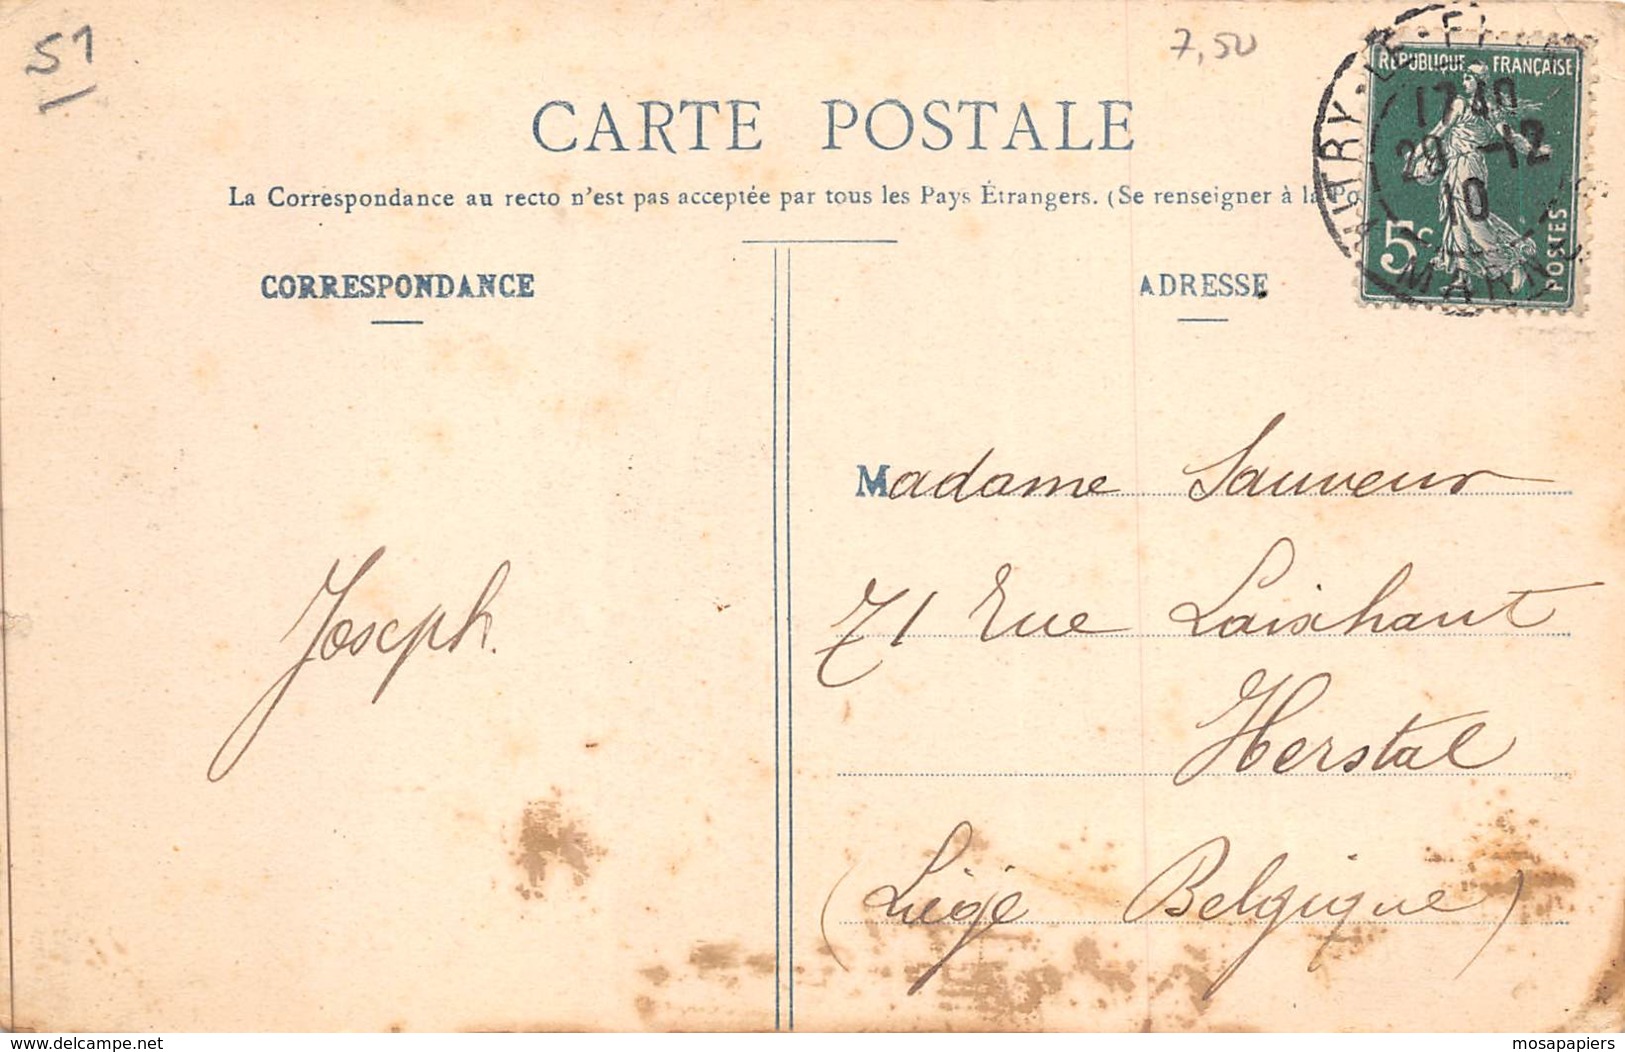 51
7,50
CARTE POSTALE
La Correspondance au recto n'est pas acceptée par tous les Pays Étrangers. (Se renseigner à la Po
CORRESPONDANCE
ADRESSE
RÉPUBLIQUE FRANÇAISE
5c
POSTES
VITRY-LE-F
17 40
-12
10
MARN
Madame Sauveur
71 Rue Laixhaut
Herstal
(Liège Belgique)
Joseph.
www.delcampe.net
mosapapiers